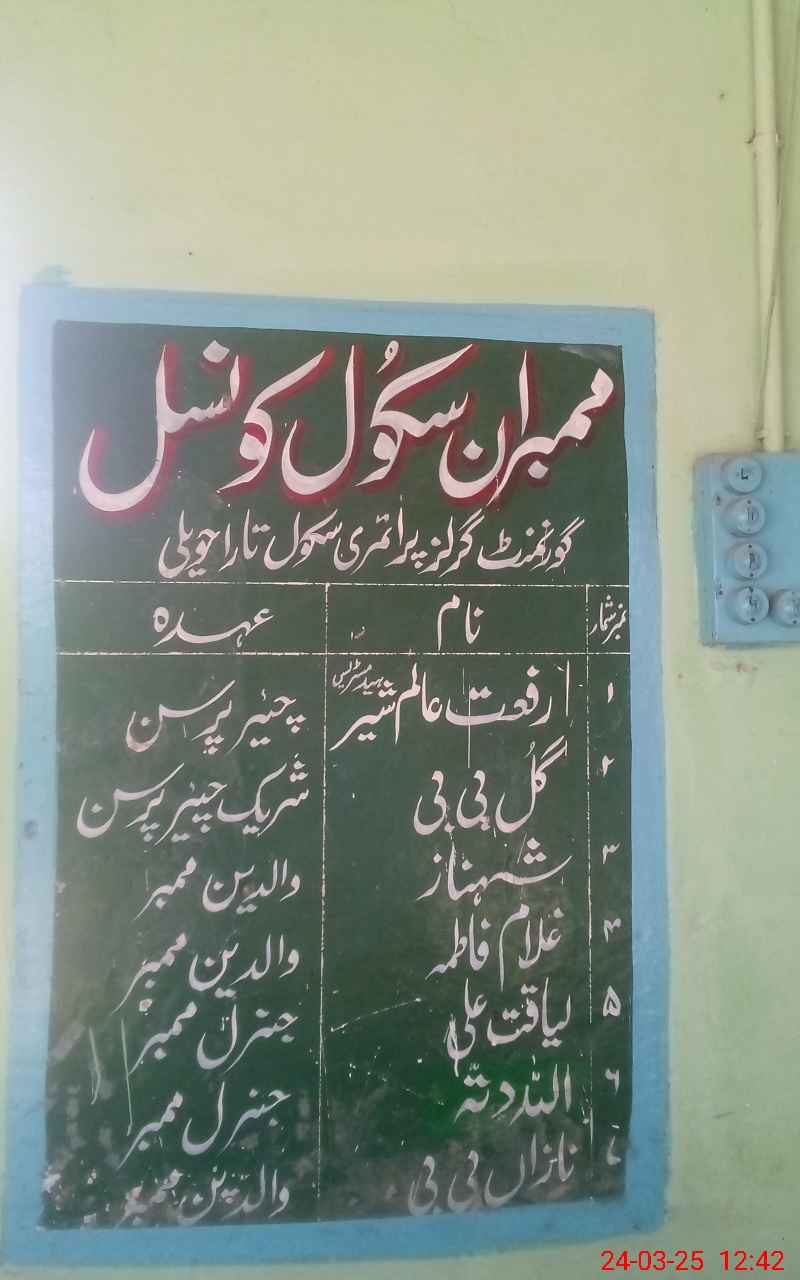 ممبران سکول کونسل
گورنمنٹ گرلز پرائمری سکول تارا حویلی
نمبر شمار نام عہدہ
۱ رفعت عالم شیر ہیڈ مسٹریس چیئر پرسن
۲ گل بی بی شریک چیئر پرسن
۳ شہناز والدین ممبر
۴ غلام فاطمہ والدین ممبر
۵ لیاقت علی جنرل ممبر
۶ اللہ دتہ جنرل ممبر
۷ نازاں بی بی والدین ممبر
24-03-25 12:42